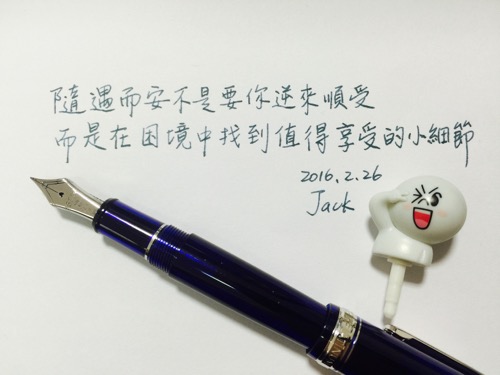 隨遇而安不是要你逆來順受
而是在困境中找到值得享受的小細節
2016.2.26
Jack